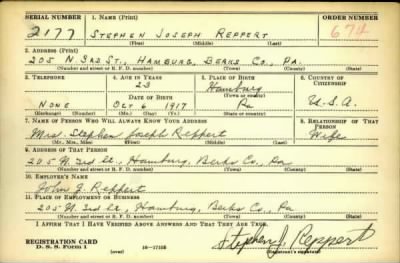 SERIAL NUMBER 1. NAME (Print) ORDER NUMBER
2177 STEPHEN JOSEPH REPPERT 674
(First) (Middle) (Last)
2. ADDRESS (Print)
205 N 3RD ST., HAMBURG, BERKS CO., PA.
(Number and street or R. F. D. number) (Town) (County) (State)
3. TELEPHONE 4. AGE IN YEARS 5. PLACE OF BIRTH 6. COUNTRY OF CITIZENSHIP
23 Hamburg
DATE OF BIRTH (Town or county)
NONE OCT 6 1917 Pa U.S.A.
(Exchange) (Number) (Mo.) (Day) (Yr.) (State or country)
7. NAME OF PERSON WHO WILL ALWAYS KNOW YOUR ADDRESS 8. RELATIONSHIP OF THAT PERSON
Mrs. Stephen Joseph Reppert Wife
(Mr., Mrs., Miss) (First) (Middle) (Last)
9. ADDRESS OF THAT PERSON
205 N. 3rd St., Hamburg, Berks Co., Pa
(Number and street or R. F. D. number) (Town) (County) (State)
10. EMPLOYER'S NAME
John J. Reppert
11. PLACE OF EMPLOYMENT OR BUSINESS
205 N. 3rd St, Hamburg, Berks Co., Pa
(Number and street or R. F. D. number) (Town) (County) (State)
I AFFIRM THAT I HAVE VERIFIED ABOVE ANSWERS AND THAT THEY ARE TRUE.
REGISTRATION CARD
D. S. S. Form 1 (over) 16-17105 Stephen J. Reppert
(Registrant's signature)